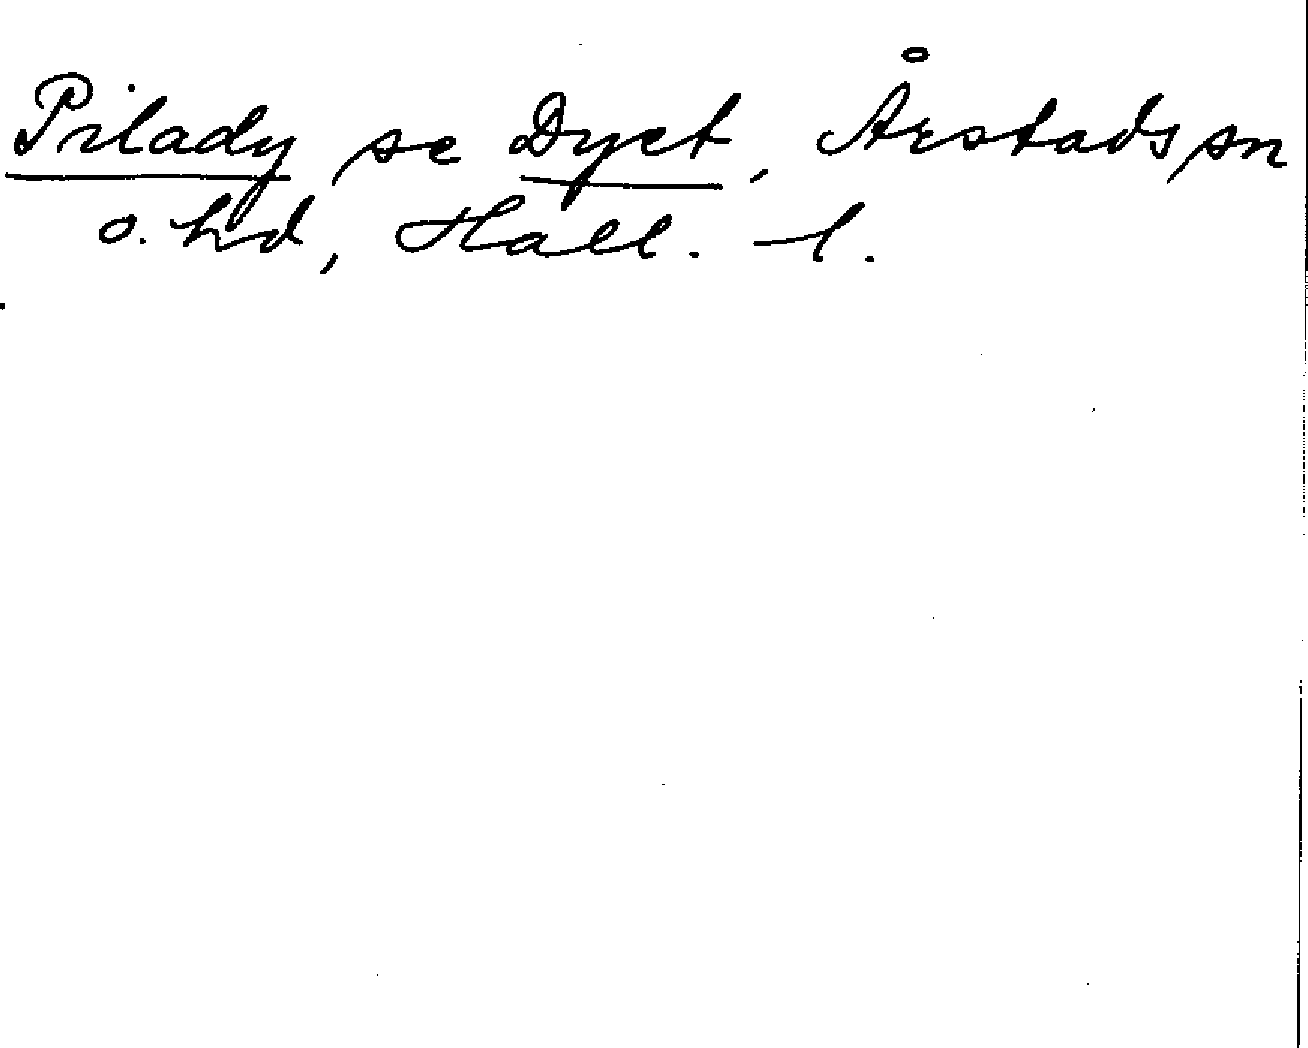 Pilady se Dyet, Årstads sn
o. hd, Hall. l.